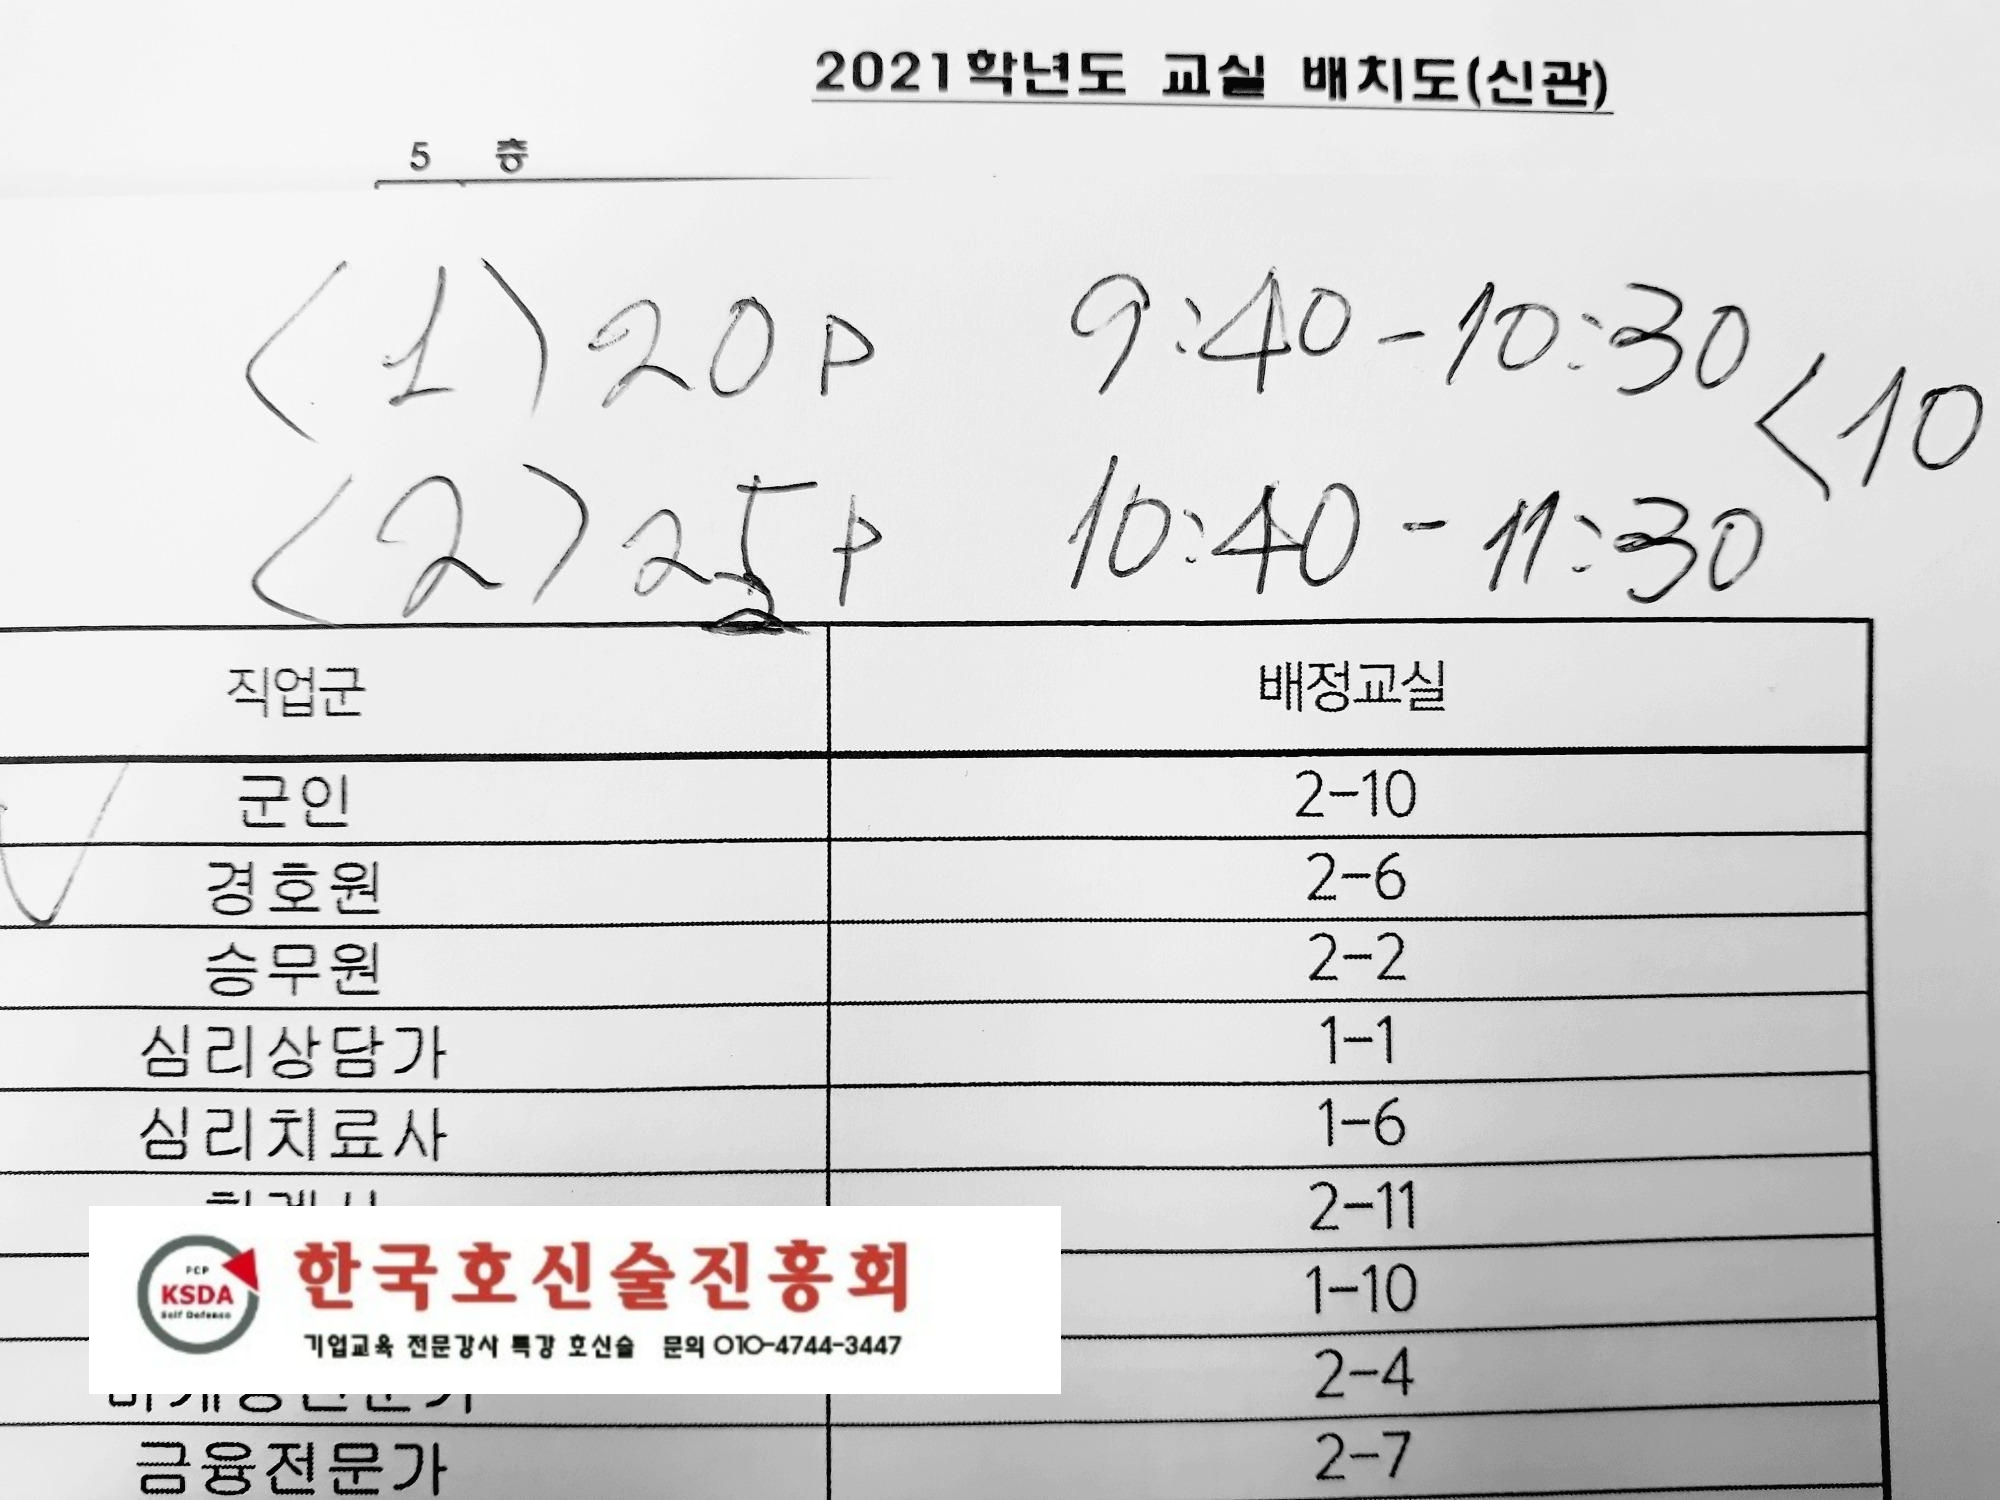 2021학년도 교실 배치도(신관)
5 층
<1> 20P 9:40-10:30
<10
<2> 25P 10:40-11:30
직업군 배정교실
군인 2-10
경호원 2-6
승무원 2-2
심리상담가 1-1
심리치료사 1-6
2-11
1-10
2-4
금융전문가 2-7
PCP
KSDA
Self Defence
한국호신술진흥회
기업교육 전문강사 특강 호신술 문의 010-4744-3447